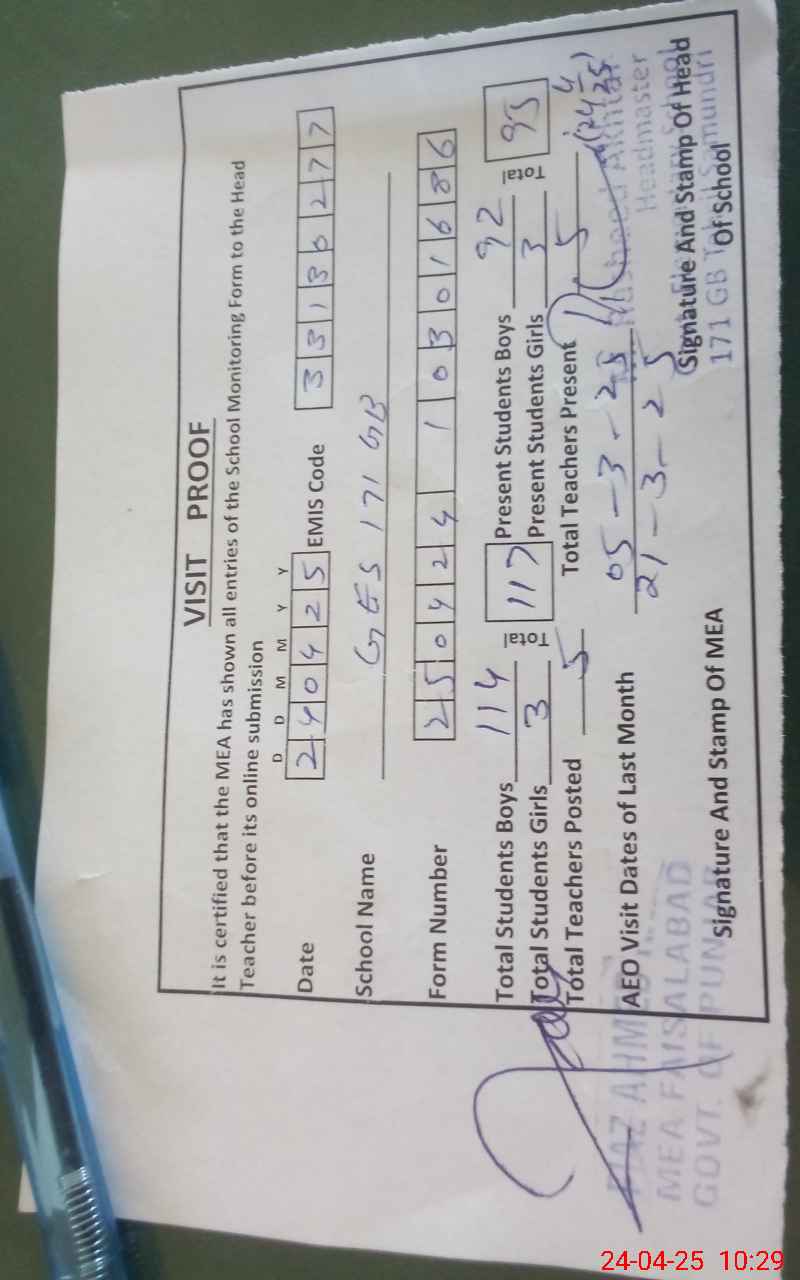 VISIT PROOF
It is certified that the MEA has shown all entries of the School Monitoring Form to the Head
Teacher before its online submission
D D M M Y Y
Date 2 4 0 4 2 5 EMIS Code 3 3 1 3 0 2 7 7
School Name GES 171 GB
Form Number 2 5 0 4 2 4 1 0 3 0 1 6 8 6
Total Students Boys 114 Total 117 Present Students Boys 92 Total 95
Total Students Girls 3 Present Students Girls 3
Total Teachers Posted 5 Total Teachers Present 5
24/4/25
AEO Visit Dates of Last Month 05-3-25
21-3-25
Headmaster
171 GB
Signature And Stamp Of MEA (Signature And Stamp Of Head
Of School
AHMED
MEA FAISALABAD
GOVT. OF PUNJAB
24-04-25 10:29